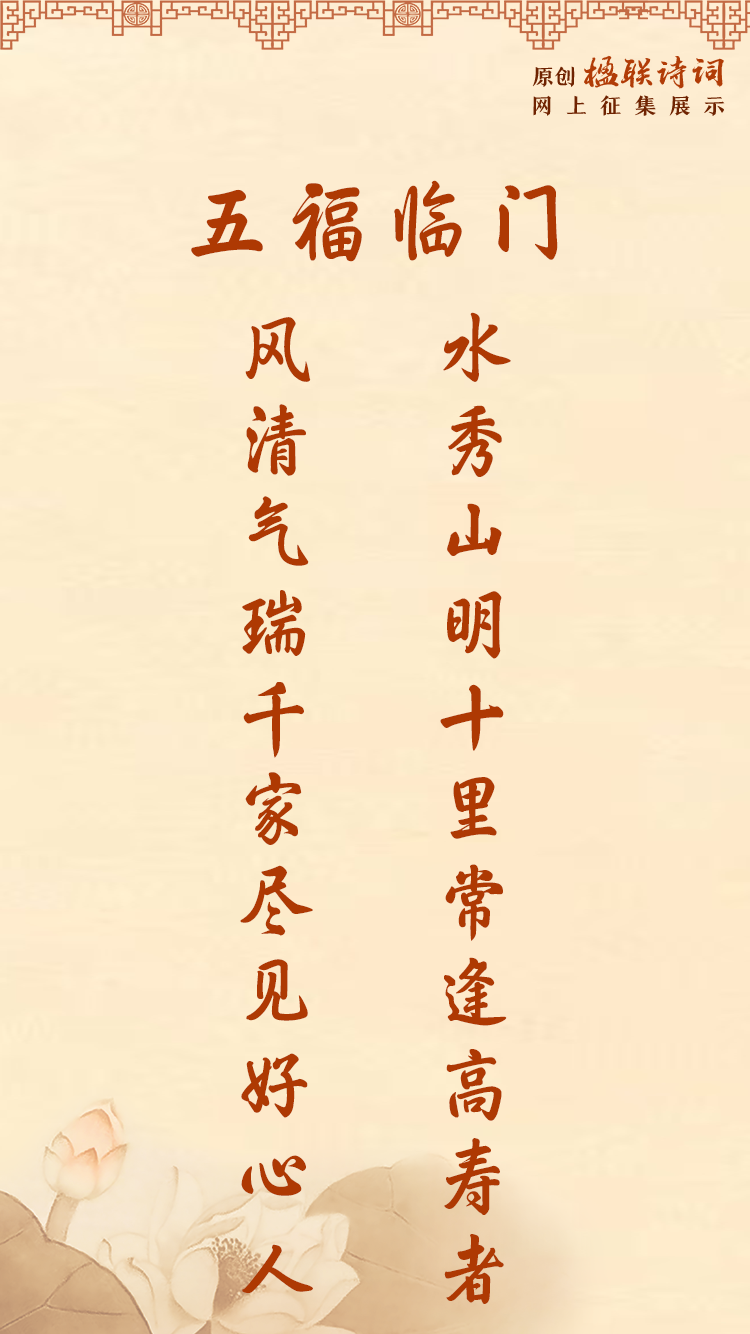 原创 楹联诗词
网上征集展示
五福临门
水秀山明十里常逢高寿者
风清气瑞千家尽见好心人